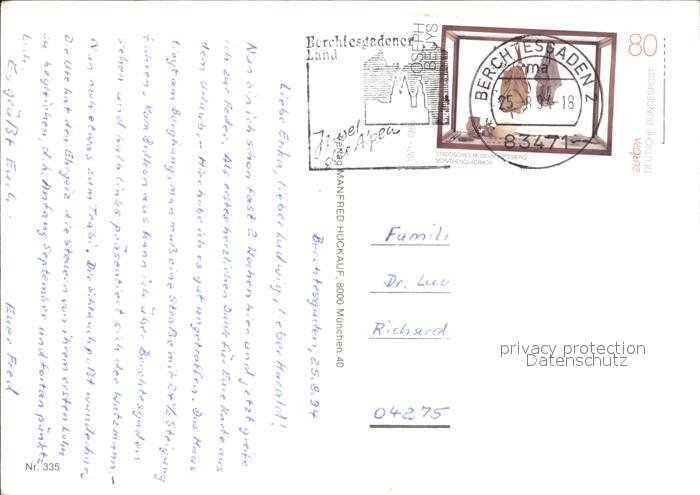 Berchtesgadener
Land
Juwel
der Alpen
JOSEPH
BEUYS
1921-1986
BERCHTESGADEN 2
ma
25.-8.94-18
83471
STÄDTISCHES MUSEUM ABTEIBERG
MÖNCHENGLADBACH
80
DEUTSCHE BUNDESPOST
EUROPA
Verlag MANFRED HUCKAUF, 8000 München 40
Berchtesgaden, 25.8.94
Liebe Erika, lieber Ludwig, lieber Harald!
Nun bin ich schon fast 2 Wochen hier und jetzt greife
ich zur Feder. Als erstes herzlichen Dank für Eure Karte aus
dem Urlaub. – Hier habe ich es gut angetroffen. Das Haus
liegt am Berghang, man muß eine Straße mit 24% Steigung
fahren. Vom Balkon aus kann ich über Berchtesgaden
sehen und halb links präsentiert sich der Watzmann. –
Nun noch etwas zum Trabi. Der Schlauch paßt wunderbar.
Die Ute hat den Ehrgeiz die Steuern von ihrem ersten Lohn
zu begleichen, d.h. Anfang September und fortan pünkt-
lich.
Es grüßt Euch
Euer Fred
Famili
Dr. Lud
Richard
04275
privacy protection
Datenschutz
Nr. 335